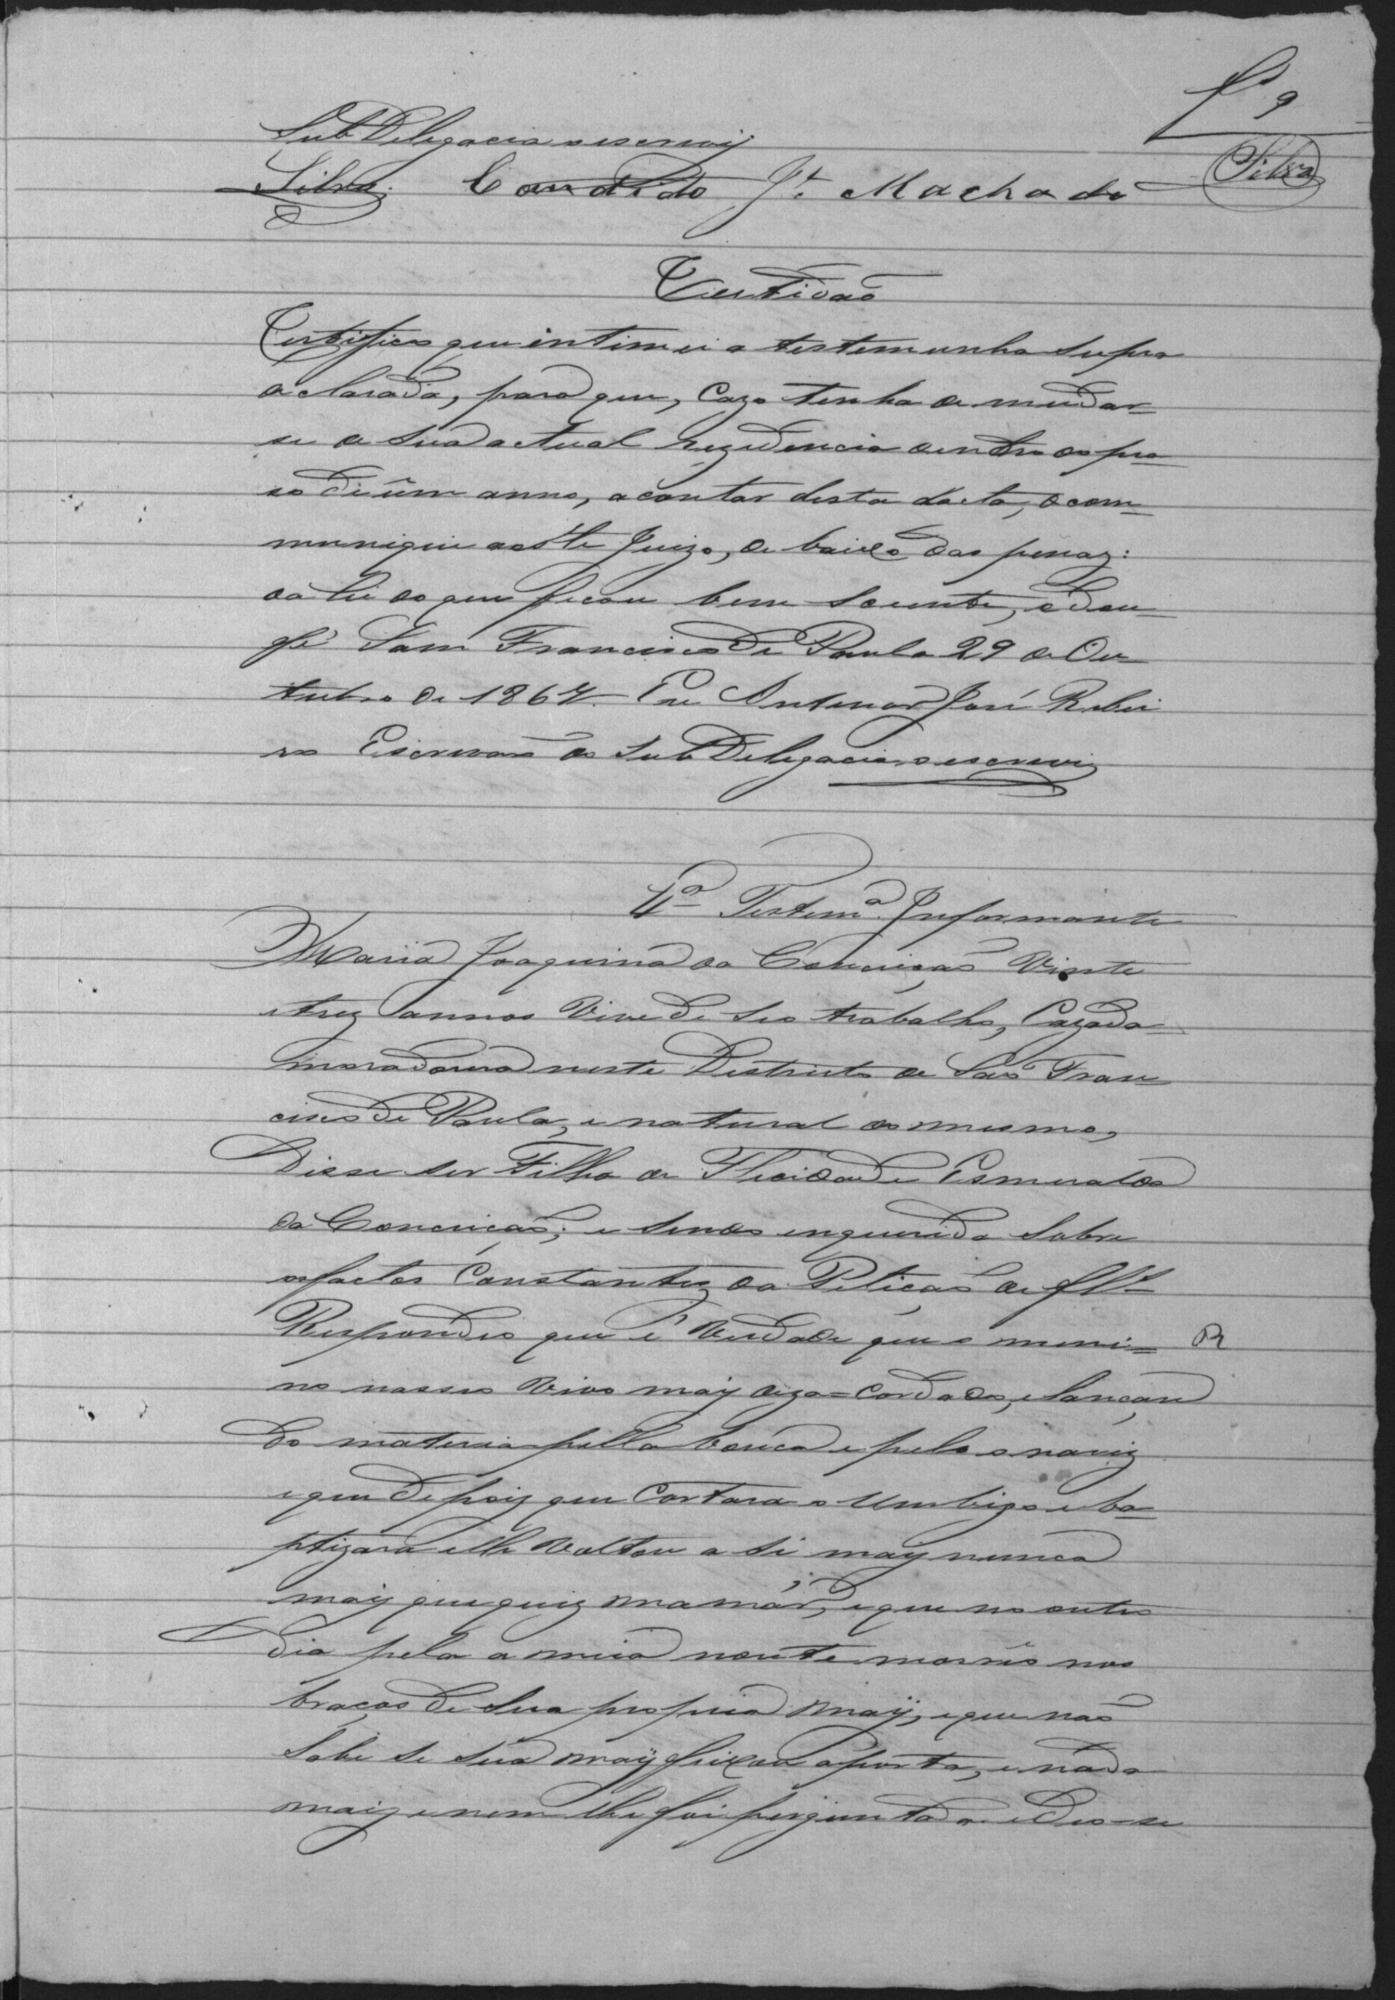 fl 9
Sub Delegacia o escrevi
Silva
Silva. Candido Je. Machado
Certidão
Certifico que intimei a testemunha supra
aclarada, para que, cazo tenha de mudar=
se de sua actual rezidencia dentro do pra=
so de um anno, a contar desta dacta, o com=
munique a este Juizo, de baixo das penaz:
da lei do que ficou bem sciente, e dou
fé Sam Francisco de Paula 29 de Ou
tubro de 1867. Eu Antenor José Ribei
ro Escrivão da Sub Delegacia o escrevi
4ª Testemª Informante
Maria Joaquina da Conceição Vinte
e trez annos Vive de seo trabalho, Cazada
moradora neste Districto de São Fran
cisco de Paula, e natural do mesmo,
Disse ser Filha de Flicidade Esmeralda
da Conceição; e sendo enquerida sobre
os factos Constantez da Petição de fl
Respondeo que é verdade que o meni= R
no nasseo vivo maiz diza=cordado, e lançan
do materia pella bouca e pelo o nariz
e que depoiz que cortara o umbigo e ba=
ptizara elle voltou a si maiz nunca
maiz que quiz mamár, e que no outro
Dia pela a meia noute morreo nos
braços de sua propria maÿ, e que não
sabe se sua maÿ feixou a porta, e nada
maiz e nem lhe foi perguntado e deo-se